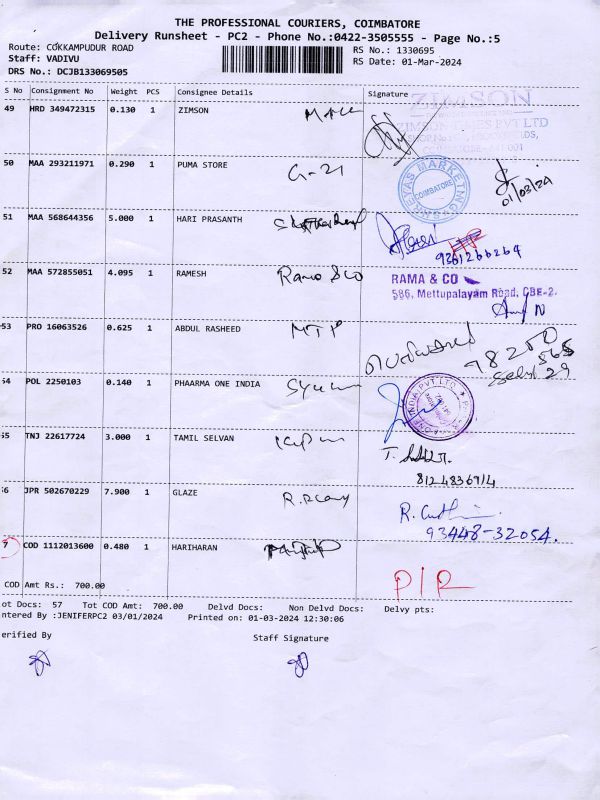 THE PROFESSIONAL COURIERS, COIMBATORE
Delivery Runsheet - PC2 - Phone No.:0422-3505555 - Page No.:5
Route: COKKAMPUDUR ROAD
RS No.: 1330695
Staff: VADIVU
RS Date: 01-Mar-2024
DRS No.: DCJB133069505
S No Consignment No Weight PCS Consignee Details Signature
49 HRD 349472315 0.130 1 ZIMSON
ZIMSON
50 MAA 293211971 0.290 1 PUMA STORE G-21
MARKETING
COIMBATORE
01/03/24
51 MAA 568644356 5.000 1 HARI PRASANTH
9361266264
52 MAA 572855051 4.095 1 RAMESH Rama & Co
RAMA & CO
586, Mettupalayam Road, CBE-2.
53 PRO 16063526 0.625 1 ABDUL RASHEED MTP
98250
565
29
54 POL 2250103 0.140 1 PHAARMA ONE INDIA
INDIA PVT. LTD
55 TNJ 22617724 3.000 1 TAMIL SELVAN
8124836914
56 JPR 502670229 7.900 1 GLAZE
93448-32054.
7 COD 1112013600 0.480 1 HARIHARAN
COD Amt Rs.: 700.00
ot Docs: 57 Tot COD Amt: 700.00 Delvd Docs: Non Delvd Docs: Delvy pts:
ntered By :JENIFERPC2 03/01/2024 Printed on: 01-03-2024 12:30:06
erified By Staff Signature